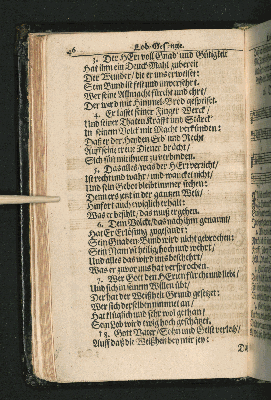 46 Lob-Gesänge.
3. Der HErr voll Gnad' und Gütigkeit
Hat ihm ein Denck-Mahl zubereit
Der Wunder/ die er uns erweiset:
Sein Bund ist fest und unversehrt.
Wer seine Allmacht fürcht und ehrt/
Der wird mit Himmel-Brod gespeiset.
4. Er lässet seiner Finger Werck/
Und seiner Thaten Krafft und Stärck'
In seinem Volck mit Macht verkünden:
Daß er der Heyden Erb' und Recht
Auff seine treue Diener brächt/
Sich sün mit ihnen zu verbinden.
5. Das alles/ was der HErr verricht/
Ist recht und wahr/ und wancket nicht/
Und sein Gebot bleibt immer stehen:
Dem er setzt in der gantzen Welt/
Hinfort auch ewiglich erhält:
Was er befihlt/ das muß ergehen.
6. Dem Volcke/ das nach ihm genannt/
Hat Er Erlösung zugesandt:
Sein Gnaden-Bund wird nicht gebrochen:
Sein Nam' ist heilig/ hoch und wehrt/
Und alles das wird uns beschehrt/
Was er zuvor uns hat versprochen.
7. Wer Gott den HErren fürcht und liebt/
Und sich in seinem Willen übt/
Der hat der Weißheit Grund gesetzt:
Wer sich derselben nimmet an/
Hat klüglich und sehr wol gethan/
Sein Lob wird ewig hoch geschätzet.
8. Gott Vater/ Sohn und Geist verleih'/
Auff daß die Weißheit bey mir sey: